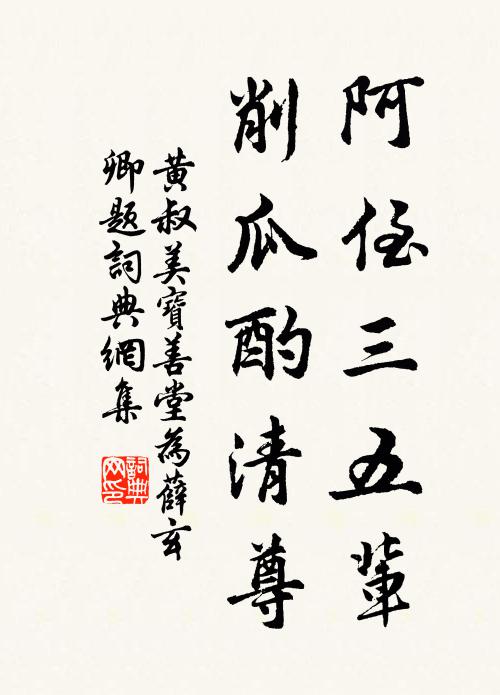 阿侄三五輩
削瓜酌清尊
黃叔美寶善堂為薛玄
卿題詞典網集
詞典
网印